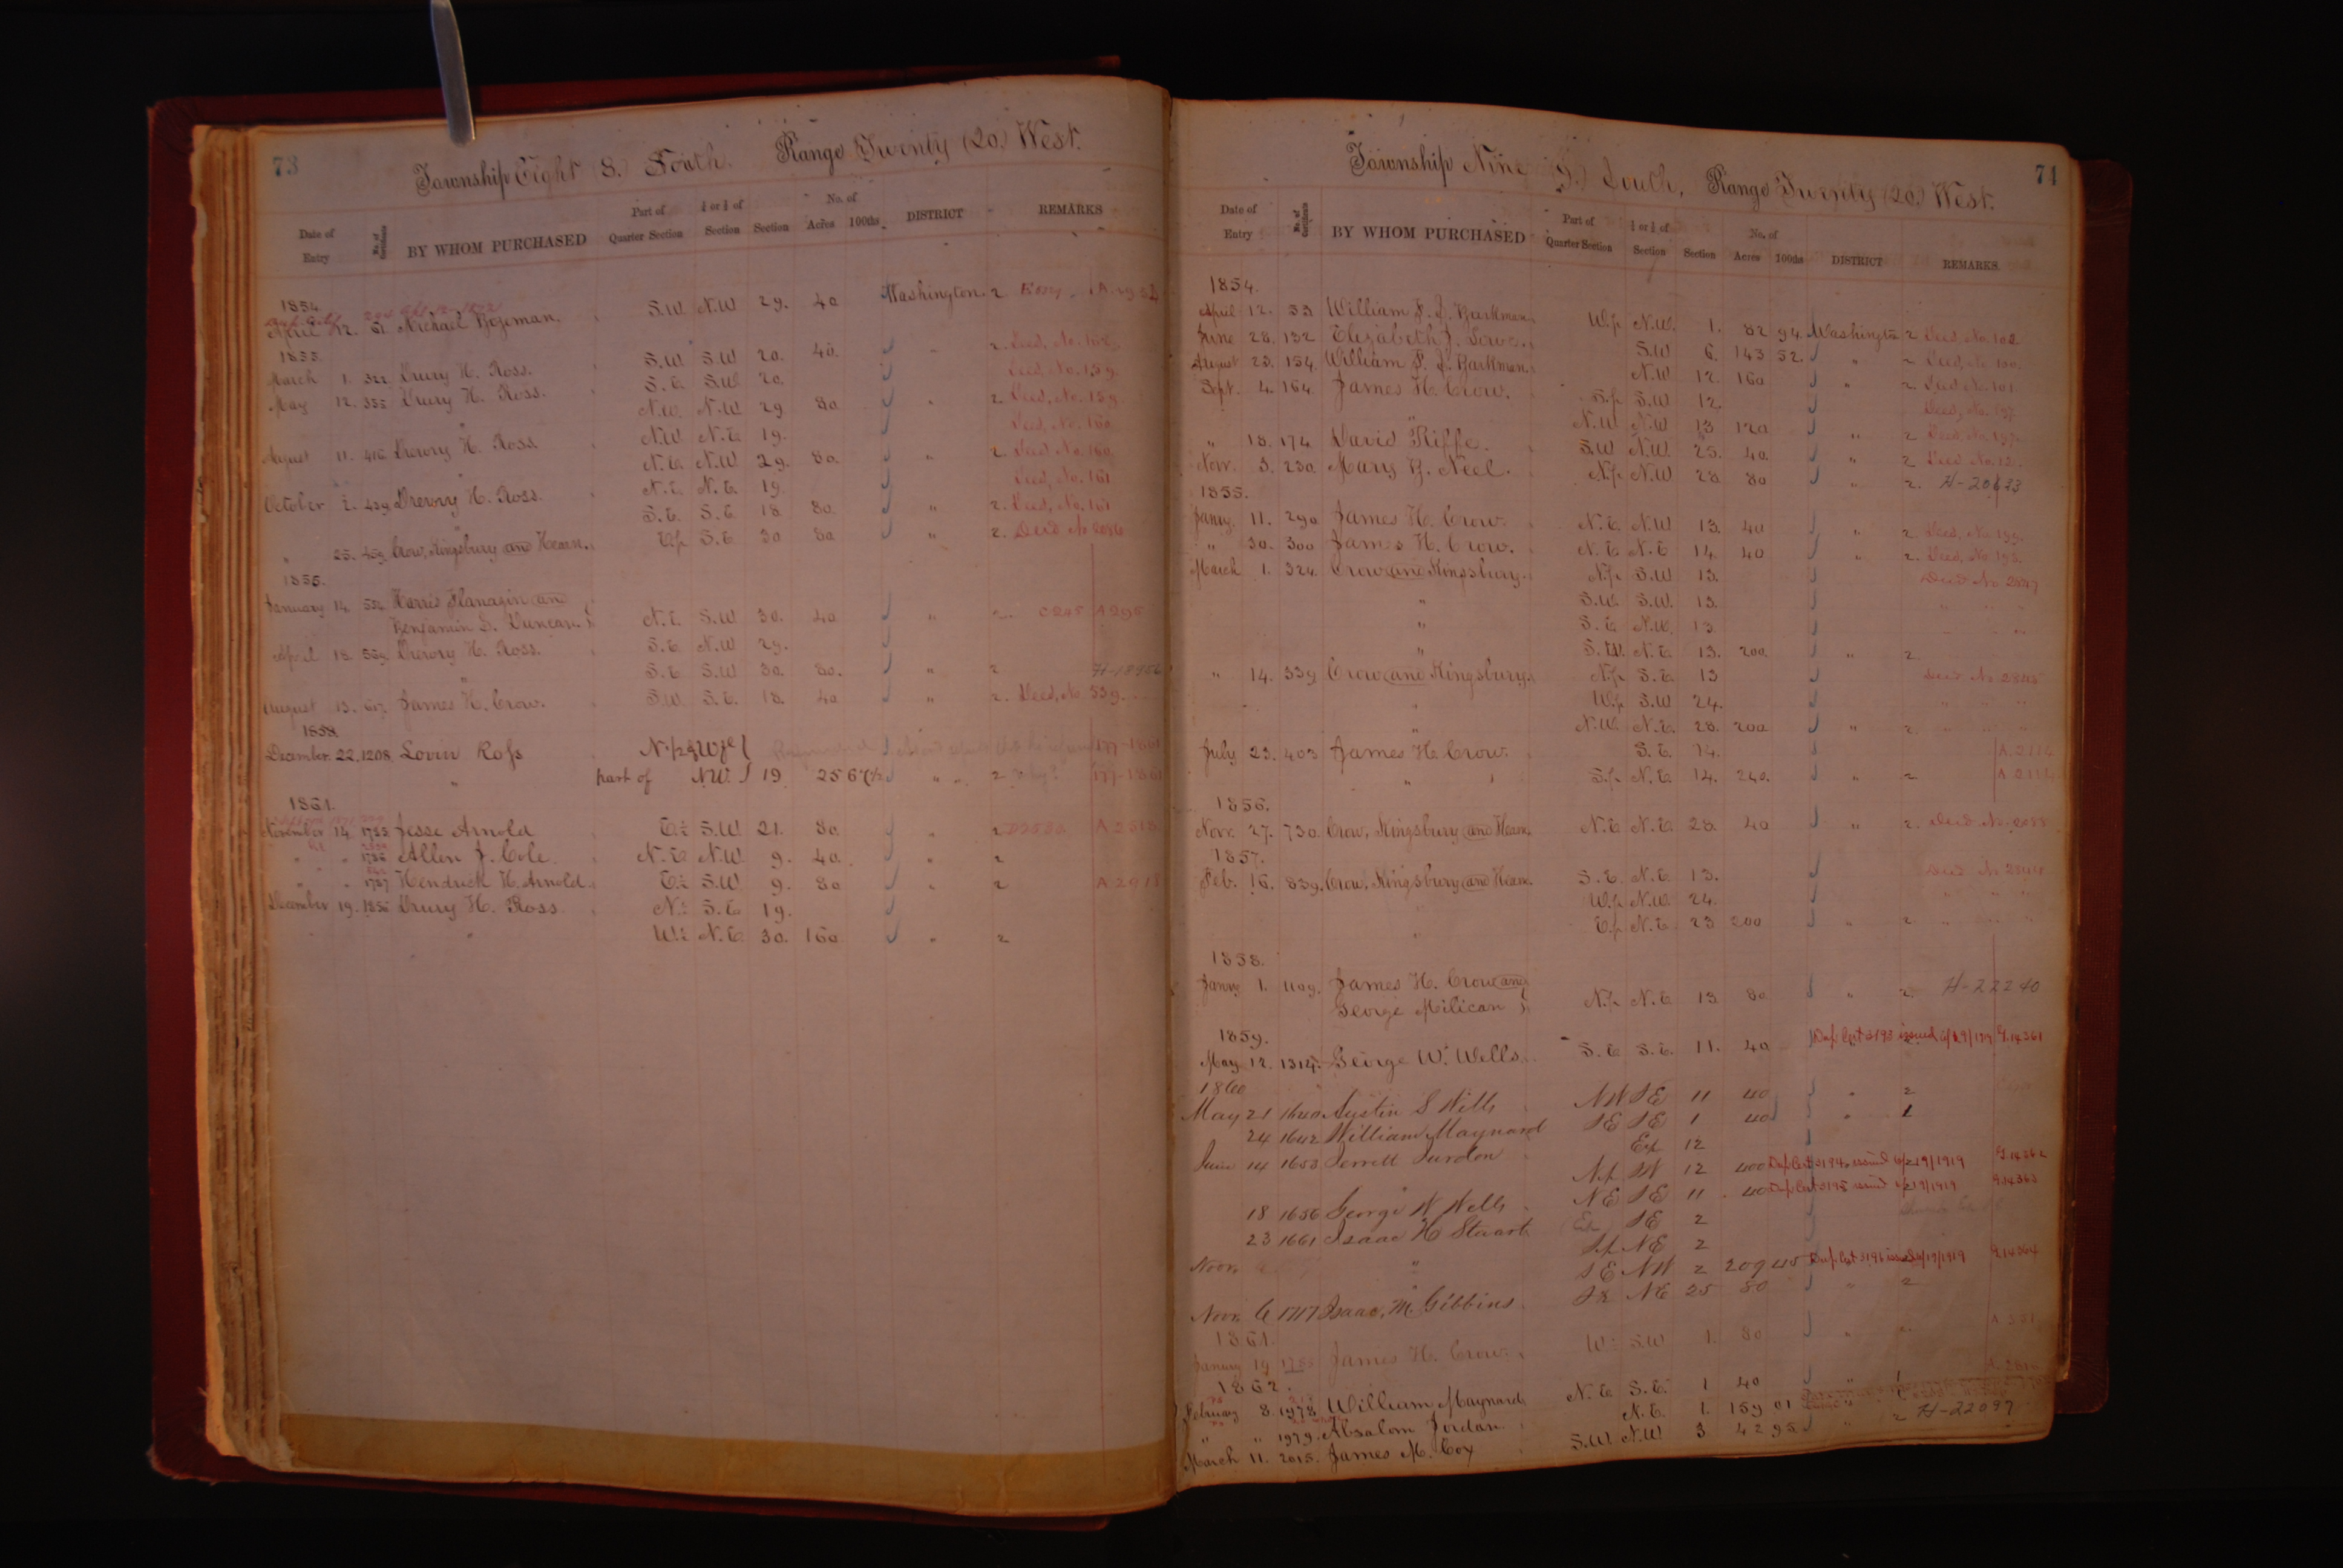 73
Township Eight (8.) South. Range Twenty (20.) West.
Date of Entry No. of Certificate BY WHOM PURCHASED Part of Quarter Section ¼ or ½ of Section Section No. of Acres 100ths DISTRICT REMARKS
1854
April 12. 61. Michael Bozeman. S.W. N.W 29. 40 Washington. 2
1855.
March 1. 322 Drury H. Ross. S.W. S.W 20. 40. 2. Deed, No. 162.
May 12. 355 Drury H. Ross. S.E. S.W. 20. Deed, No. 159.
" N.W. N.W 29 80 " 2 Deed, No. 159.
August 11. 416. Drewry H. Ross N.W. N.E. 19. Deed, No. 160
" N.E. N.W. 29. 80. " 2. Deed No. 160.
October 2. 439. Drewry H. Ross. N.E. N.E. 19. Deed, No. 161
" S.E. S.E. 18. 80. " 2. Deed, No. 161
" 25. 459. Crow, Kingsbury and Hearn. E.½ S.E 30 80 " 2. Deed No 2086
1855.
January 14. Harris Flanagin and
Benjamin S. Duncan. N.E. S.W. 30. 40. " C245 A 295
April 18. 569. Drewry H. Ross. S.E. N.W 29.
" S.E. S.W 30. 80. " 2
August 13. James H. Crow. S.W. S.E. 18. 40 " 2. Deed, No. 539.
1858.
December 22. 1208. Lovin Ross
" part of N.W. 19. 25 67½ " " 2
1861.
November 14. 1785 Jesse Arnold E.½ S.W. 21. 80. " 2
" " 1786 Allen J. Cole. N.E. N.W. 9. 40. " 2
" " 1787 Hendrick H. Arnold. E.½ S.W. 9. 80 " 2
December 19. 1856 Drury H. Ross. N.½ S.E 19.
" W.½ N.E. 30. 160 " 2
74
Township Nine (9.) South, Range Twenty (20.) West.
Date of Entry No. of Certificate BY WHOM PURCHASED Part of Quarter Section ¼ or ½ of Section Section No. of Acres 100ths DISTRICT REMARKS.
1854.
April 12. 53. William S. D. Barkman. W.½ N.W. 1. 82 94. Washington 2 Deed, No. 102
June 28. 132 Elizabeth J. Lowe. S.W 6. 143 52. " 2 Deed, No 100.
August 23. 154. William S. D. Barkman. N.W 12. 160 " 2. Deed No. 101.
Sept. 4. 164. James H. Crow. S.½ S.W 12. Deed, No. 197
" N.W. N.W 13 120 " 2 Deed, No. 197.
" 18. 174 David Riffe. S.W N.W. 25. 40. " 2 Deed No. 12.
Nov. 3. 230. Mary B. Neel. N.½ N.W 28 80 " 2. H-20633
1855.
Janry. 11. 290 James H. Crow. N.E. N.W. 13. 40 " 2 Deed, No. 199.
" 30. 300 James H. Crow. N.E N.E 14. 40 " 2. Deed, No. 198.
March 1. 324. Crow and Kingsbury. N.½ S.W 13.
" S.W. S.W. 13.
" S.E. N.W. 13
" S.W. N.E. 13. 200. " 2.
" 14. 339 Crow and Kingsbury. N.½ S.E. 13
" W.½ S.W 24.
" N.W. N.E. 28. 200 " 2.
July 23. 403 James H. Crow. S.E. 14. A. 2114
" S.½ N.E. 14. 240. " 2 A 2114
1856.
Nov. 27. 730. Crow, Kingsbury and Hearn. N.E N.E. 28. 40 " 2.
1857.
Feb. 16. 839. Crow, Kingsbury and Hearn. S.E. N.E. 13.
W.½ N.W. 24.
" E.½ N.E. 23 200 " 2.
1858.
Janry 1. 1109. James H. Crow and
George Milican N.½ N.E. 13 80 " 2. H-22240
1859.
May 12. 1314. George W. Wells. S.E S.E. 11. 40 Dup Cert 3193 issued 6/19/1919 G.14361
1860
May 21 1640 Austin S Wells NW SE 11 40 " 2
24 1642 William Maynard SE SE 1 40 " 2
June 14 1653 Jerrett Jurdon E½ 12
" N½ SW 12 400 Dup Cert 3194 issued 6/19/1919 G.14362
18 1656 George W Wells NE SE 11 40 Dup Cert 3195 issued 6/19/1919 G.14363
23 1661 Isaac H Stuart E½ SE 2
S½ NE 2
Nov. " SE NW 2 209 45 Dup Cert 3196 issued 6/19/1919 G.14364
Nov. 6 1717 Isaac M. Gibbins. NE 25 80 " 2
1861.
January 19 James H. Crow. W.½ S.W 1. 80 "
1862.
February 8. 1978. William Maynard N.E S.E. 1 40 "
" " 1979. Absalom Jordan. N.E. 1. 159 01 "
March 11. 2015. James M. Cox S.W. N.W. 3 42 95 " 2 H-22097